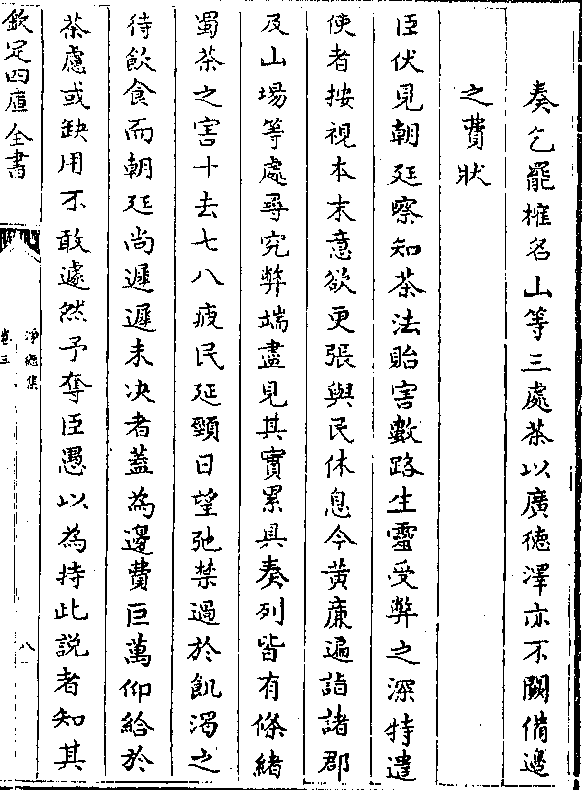 奏乞罷榷名山等三處茶以廣德澤亦不闕備邊
之費狀
臣伏見朝廷察知茶法貽害數路生靈受弊之深特遣
使者按視本末意欲更張與民休息今黃廉遍詣諸郡
及山場等處尋究弊端盡見其實累具奏列皆有條緒
蜀茶之害十去七八疲民延頸日望弛禁過於飢渴之
待飲食而朝廷尚遲遲未決者蓋為邊費巨萬仰給於
茶慮或缺用不敢遽然予奪臣愚以為持此説者知其
欽定四庫全書
淨德集
卷三
八